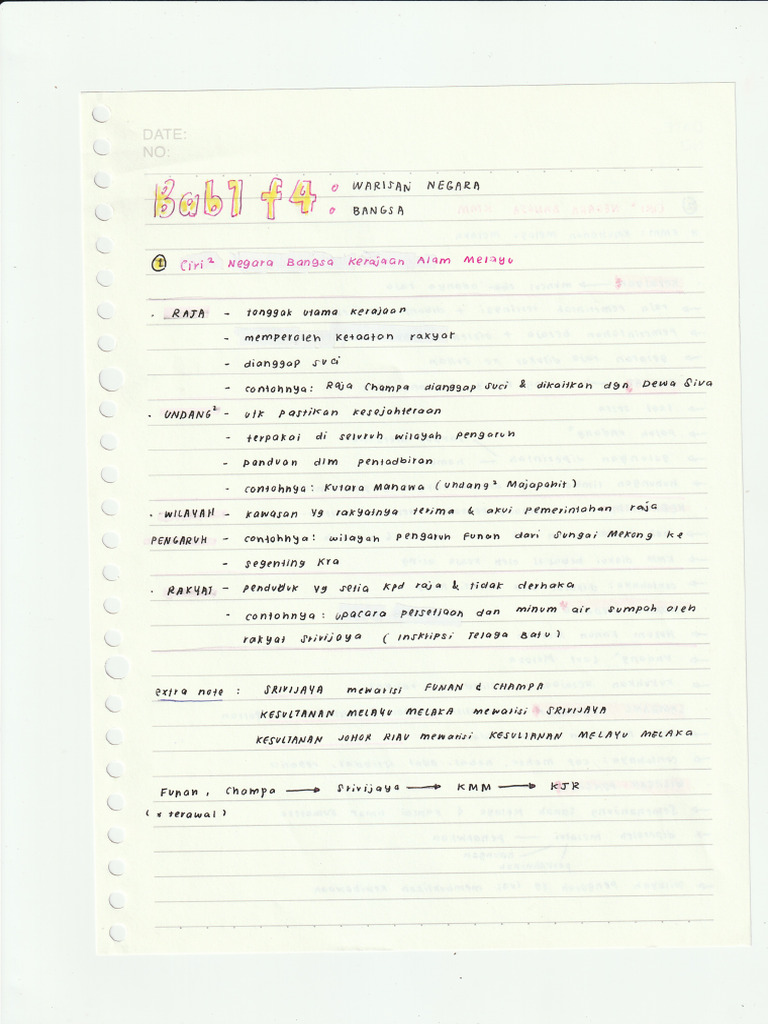 DATE:
NO:
Bab 1 f4 : WARISAN NEGARA
BANGSA
① Ciri² Negara Bangsa Kerajaan Alam Melayu
· RAJA - tonggak utama kerajaan
- memperoleh ketaatan rakyat
- dianggap suci
- contohnya: Raja Champa dianggap suci & dikaitkan dgn Dewa Siva
· UNDANG² - utk pastikan kesejahteraan
- terpakai di seluruh wilayah pengaruh
- panduan dlm pentadbiran
- contohnya: Kutara Manawa (undang² Majapahit)
· WILAYAH - kawasan yg rakyatnya terima & akui pemerintahan raja
PENGARUH - contohnya: wilayah pengaruh Funan dari Sungai Mekong ke
- segenting Kra
· RAKYAT - penduduk yg setia kpd raja & tidak derhaka
- contohnya: upacara persetiaan dan minum air sumpah oleh
rakyat Srivijaya (Inskripsi Telaga Batu)
extra note : SRIVIJAYA mewarisi FUNAN & CHAMPA
KESULTANAN MELAYU MELAKA mewarisi SRIVIJAYA
KESULTANAN JOHOR RIAU mewarisi KESULTANAN MELAYU MELAKA
Funan, Champa → Srivijaya → KMM → KJR
(* terawal)